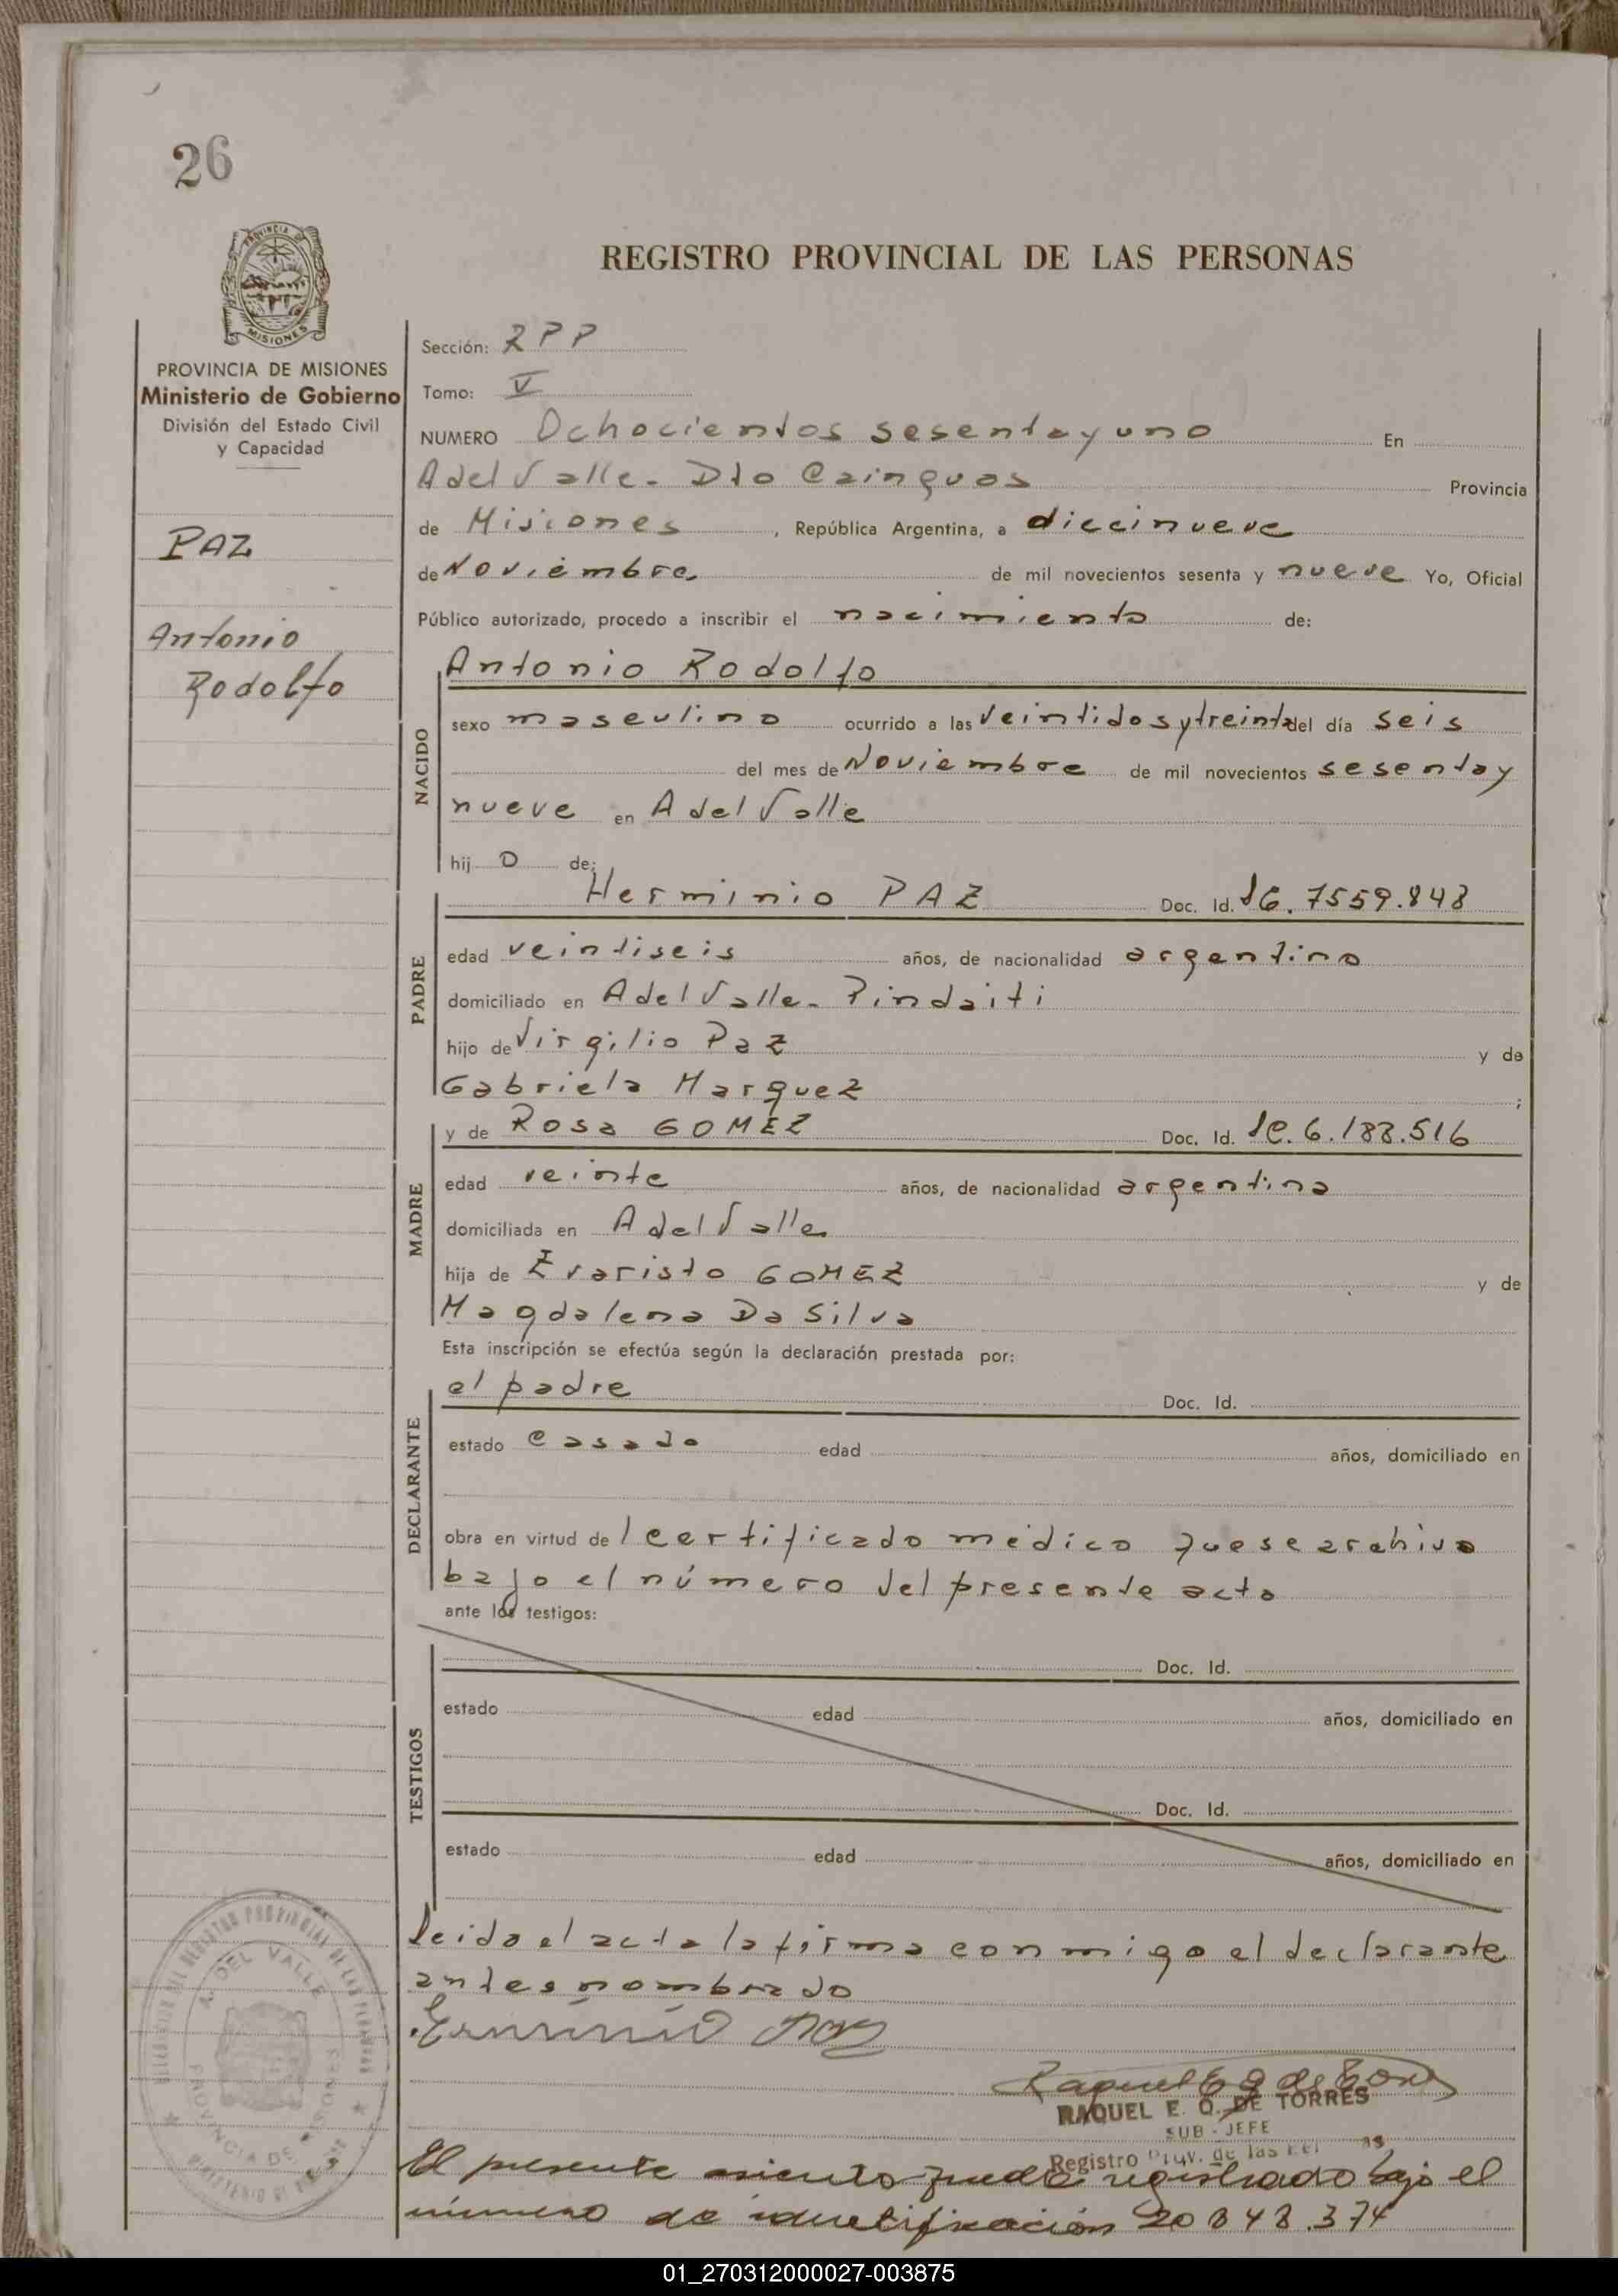 26
REGISTRO PROVINCIAL DE LAS PERSONAS
PROVINCIA DE MISIONES
Ministerio de Gobierno
División del Estado Civil
y Capacidad
PAZ
Antonio
Rodolfo
Sección: RPP
Tomo: V
NUMERO Ochocientos sesenta y uno En
A del Valle - Dto Cainguas Provincia
de Misiones, República Argentina, a diecinueve
de Noviembre de mil novecientos sesenta y nueve Yo, Oficial
Público autorizado, procedo a inscribir el nacimiento de:
NACIDO
Antonio Rodolfo
sexo masculino ocurrido a las veintidos y treinta del día seis
del mes de Noviembre de mil novecientos sesenta y
nueve en A del Valle
hij o de:
PADRE
Herminio PAZ Doc. Id. 7559.848
edad veintiseis años, de nacionalidad argentino
domiciliado en A del Valle - Pindaiti
hijo de Virgilio Paz y de
Gabriela Marquez ;
MADRE
y de Rosa GOMEZ Doc. Id. 6.188.516
edad veinte años, de nacionalidad argentina
domiciliada en A del Valle
hija de Evaristo GOMEZ y de
Magdalena Da Silva
Esta inscripción se efectúa según la declaración prestada por:
DECLARANTE
el padre Doc. Id.
estado casado edad años, domiciliado en
obra en virtud de l certificado médico que se archiva
bajo el número del presente acta
ante los testigos:
TESTIGOS
Doc. Id.
estado edad años, domiciliado en
Doc. Id.
estado edad años, domiciliado en
Leida el acta la firma conmigo el declarante
antes nombrado
RAQUEL E. Q. DE TORRES
SUB - JEFE
Registro Prov. de las
El presente asiento quedó registrado bajo el
número de identificación 20 848.374
A. DEL VALLE
PROVINCIA DE MISIONES
01_270312000027-003875